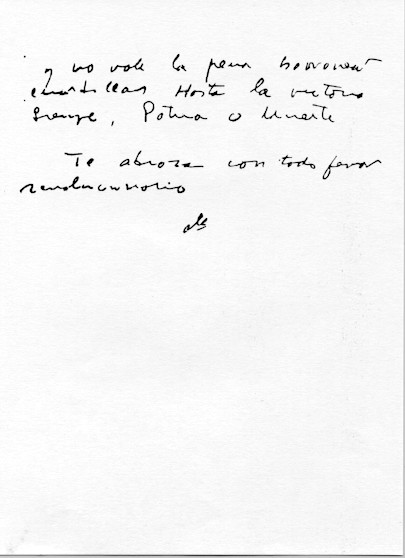 y no vale la pena borronear
cuartillas Hasta la victoria
siempre, Patria o Muerte
Te abraza con todo fervor
revolucionario